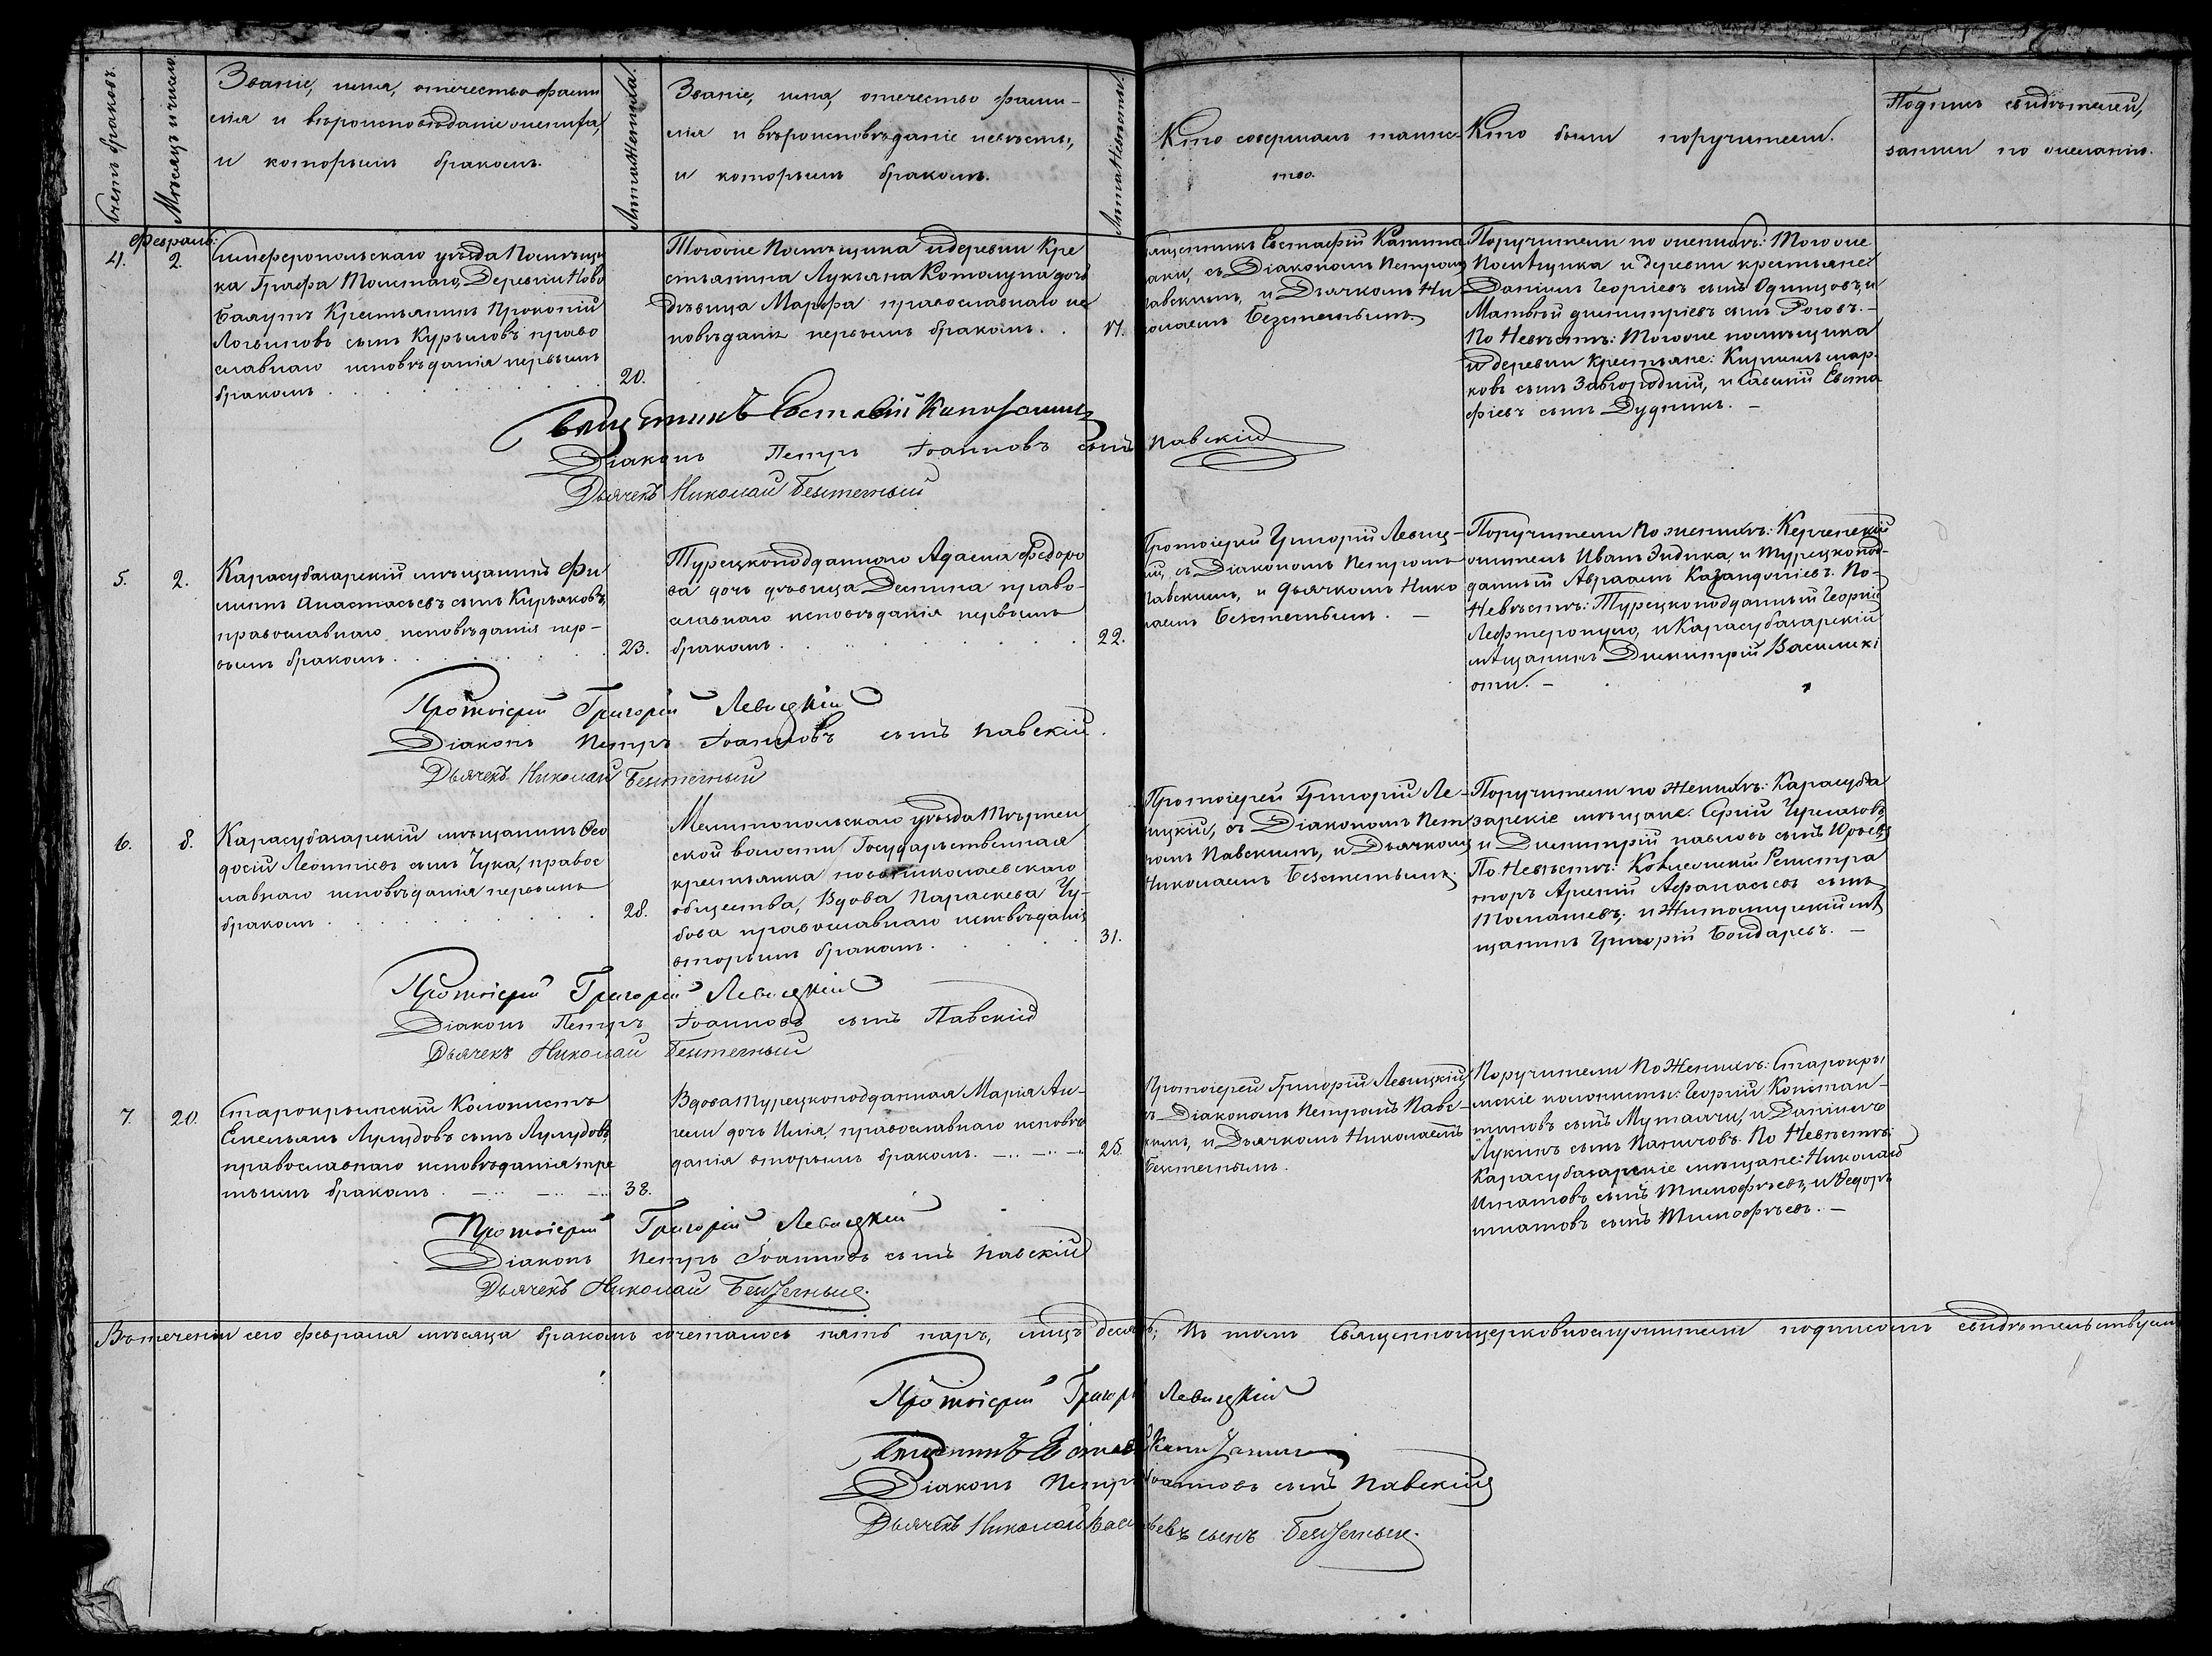 Счетъ браковъ.
Мѣсяцъ и число.
Званіе, имя, отечество фами
лія и вѣроисповѣданіе жениха,
и которымъ бракомъ.
Лѣта жениха.
Званіе, имя, отечество фами-
лія и вѣроисповѣданіе невѣсты,
и которымъ бракомъ.
Лѣта невѣсты.
Кто совершалъ таинс-
тво.
Кто были поручители.
Подпись свидѣтелей,
записи по желанію.
Февраль.
4.
2.
Симферопольскаго уѣзда Помѣщи
ка Графа Деревни Ново
Крестьянинъ Прокопій
Логвиновъ сынъ Курыловъ право
славнаго исповѣданія первымъ
бракомъ
20.
Тогоже Помѣщика и деревни Кре
стьянина Лукьяна дочь
дѣвица Марфа православнаго ис
повѣданія первымъ бракомъ.
17.
Священникъ Евстафій
съ Діакономъ Петромъ
Павскимъ, и Дьячкомъ Ни
колаемъ
Поручители по женихѣ: Тогоже
Помѣщика и деревни крестьяне:
Даніилъ Георгіевъ сынъ Одинцовъ, и
Матвѣй Димитріевъ сынъ Роговъ. -
По Невѣстѣ: Тогоже помѣщика
и деревни крестьяне: Кириллъ Мар-
ковъ сынъ Завгородній, и Савелій Евста
фіевъ сынъ Дудникъ. -
Священникъ Евставій
Діаконъ Петръ Іоанновъ сынъ Павскій
Дьячекъ Николай
5.
2.
Карасубазарскій мѣщанинъ Фи
липъ Анастасьевъ сынъ Кирьяковъ,
православнаго исповѣданія пер-
вымъ бракомъ.
23.
Турецкоподданнаго Адама Федоро
ва дочь дѣвица Деспина право-
славнаго исповѣданія первымъ
бракомъ.
22.
Протоіерей Григорій Левиц-
кій, съ Діакономъ Петромъ
Павскимъ, и дьячкомъ Нико
лаемъ
Поручители по женихѣ: Керченскій
житель Иванъ и турецкопод-
данный Авраамъ По-
Невѣстѣ: Турецкоподданный Георгій
Лефтеропуло, и Карасубазарскій
мѣщанинъ Димитрій Василикі
оти. -
Протоіерей Григорій Левицкій
Діаконъ Петръ Іоанновъ сынъ Павскій.
Дьячекъ Николай
6.
8.
Карасубазарскій мѣщанинъ Ѳео
досій Леонтіевъ сынъ Чука, правос
лавнаго исповѣданія первымъ
бракомъ
28.
Мелитопольскаго уѣзда
ской волости Государственная
крестьянка новониколаевскаго
общества, Вдова Параскева Чу-
бова православнаго исповѣданія
вторымъ бракомъ.
31.
Протоіерей Григорій Ле-
вицкій, съ Діакономъ Пет
ромъ Павскимъ, и Дьячкомъ
Николаемъ
Поручители по Женихѣ: Карасуба
зарскіе мѣщане:
и Димитрій Павловъ сынъ Юрьевъ
По Невѣстѣ: Коллежскій Регистра
торъ Арсеній Афанасьевъ сынъ
Томашевъ, и Житомирскій мѣ
щанинъ Григорій Бондаревъ. -
Протоіерей Григорій Левицкій
Діаконъ Петръ Іоанновъ сынъ Павскій
Дьячекъ Николай
7.
20.
Старокрымскій Колонистъ
Емельянъ Лулудовъ сынъ Лулудовъ,
православнаго исповѣданія тре
тьимъ бракомъ.
38.
Вдова турецкоподданная Марія Ан-
гели дочь православнаго исповѣ
данія вторымъ бракомъ.
25.
Протоіерей Григорій Левицкій,
съ Діакономъ Петромъ Павс-
кимъ, и Дьячкомъ Николаемъ
Поручители По Женихѣ: Старокры
мскіе колонисты: Георгій Констан-
тиновъ сынъ и Даніилъ
Лукинъ сынъ По Невѣстѣ:
Карасубазарскіе мѣщане: Николай
Игнатовъ сынъ Тимофѣевъ, и Ѳедоръ
Игнатовъ сынъ Тимофѣевъ. -
Протоіерей Григорій Левицкій
Діаконъ Петръ Іоанновъ сынъ Павскій
Дьячекъ Николай
Въ теченіи сего февраля мѣсяца бракомъ сочеталось пять паръ, лицъ десять; въ томъ Священноицерковнослужители подписомъ свидѣтельствуемъ
Протоіерей Григорій Левицкій
Священникъ
Діаконъ Петръ Іоанновъ сынъ Павскій
Дьячекъ Николай Васильевъ сынъ